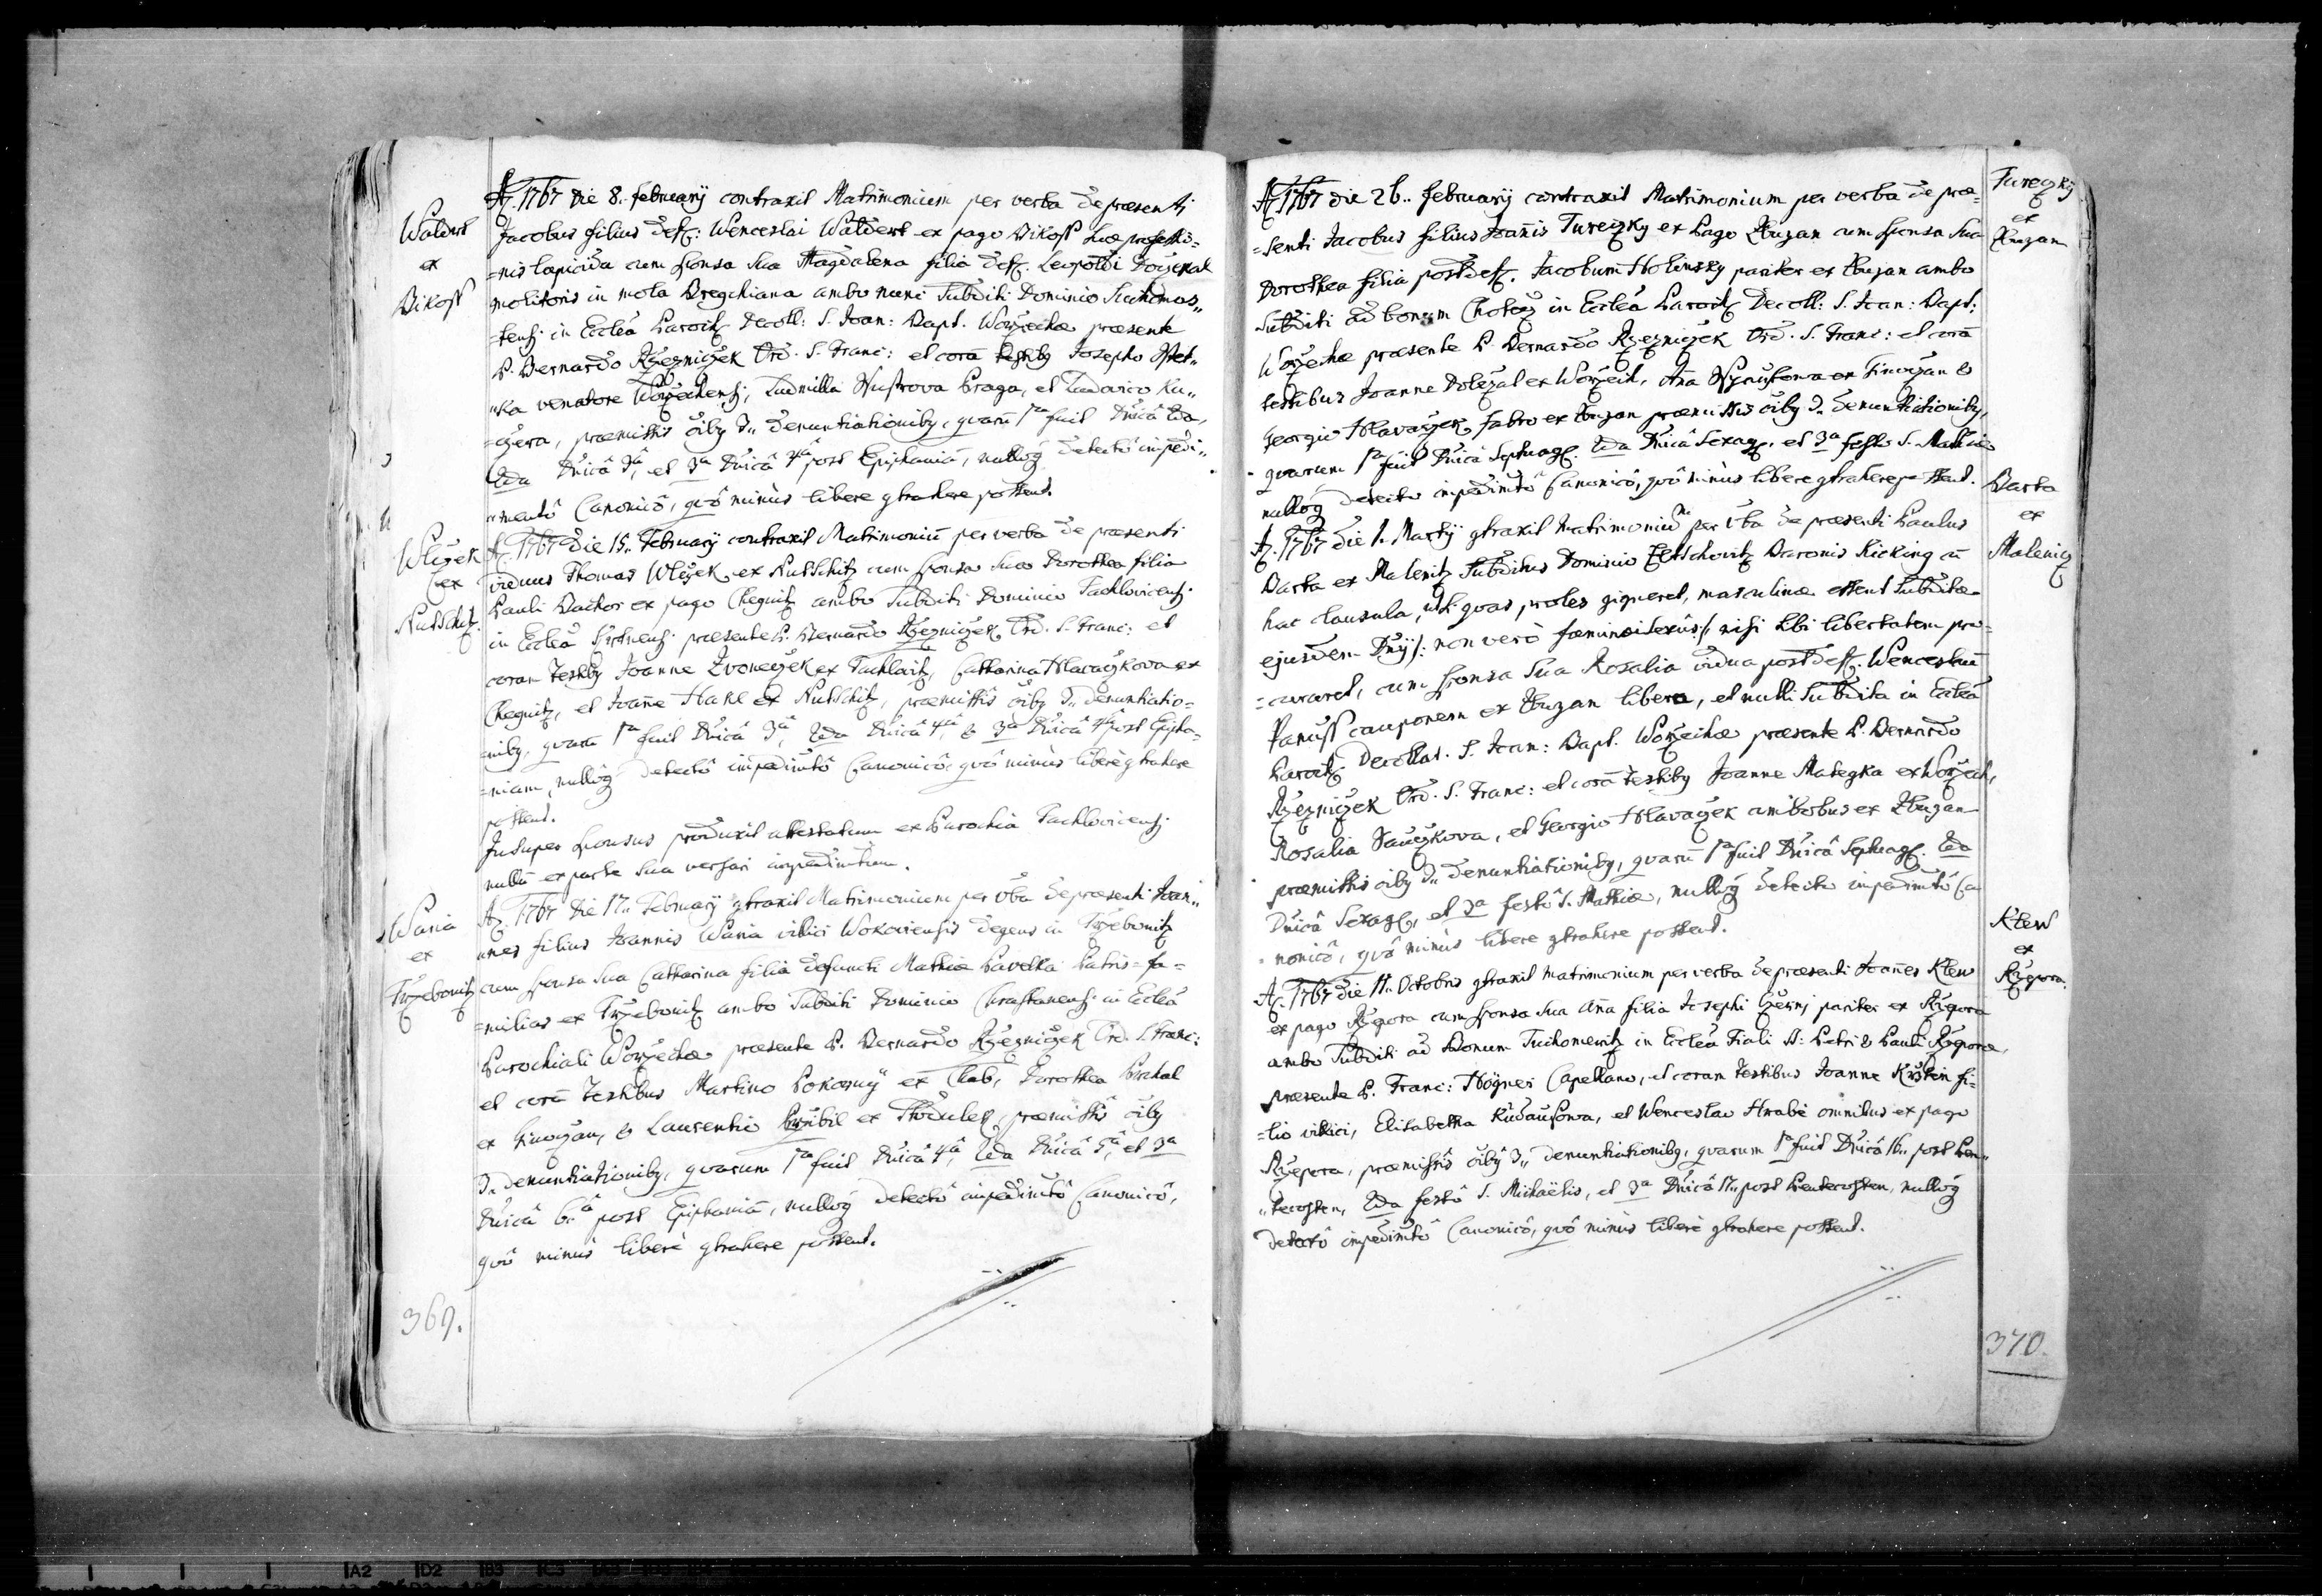 Waldert
ex
Dikoss
Aō. 1767 die 8. february contraxit Matrimonium per verba de præsenti
Jacobus filius deff: Wenceslai Waldert ex pago Dikoss suæ professio=
=nis lapicida cum sponsa sua Magdalena filia deff. Leopoldi
molitoris in mola ambo nunc Subditi Dominio Tuchomos,,
=tensi in Ecclêa Paroch: Decoll: S. Joan: Bapt. Worzechæ præsente
P. Bernardo Rzezniczek Ord. S. Franc: et corā testibꝫ Josepho
venatore Worzechensi, Ludmilla Praga, et Ludovico Ku,,
=czera, præmissis oībꝫ 3. denuntiationibꝫ, qvarū 1ma fuit Dnicâ 2da,
2da Dnicâ 3â, et 3a Dnicâ 4â post Epiphaniā, nullóq detectô impedi,,
,,mentô Canonicô, qvô minùs libere ɔtrahere possent.
Wlczek
ex
Nutschitz.
Aō. 1767 die 15. february contraxit Matrimoniū per verba de præsenti
viduus Thomas Wlczek ex Nutschitz cum sponsa sua Dorothea filia
Pauli ex pago Chegnitz ambo Subditi Dominio Tachlovicensi
in Ecclêa præsente P. Bernardo Rzezniczek Ord. S. Franc: et
coram testibꝫ Joanne Zvoneczek ex Tachlovitz, Catharina Hlavaczkova ex
Chegnitz, et Joāne Hakl ex Nutschitz, præmissis oībꝫ 3. denuntiatio=
nibꝫ, qvarū 1ma fuit Dnicâ 3â, 2da Dnicâ 4â, & 3a Dnicâ post Epipha=
=niam, nullóq detectô impedimtô Canonicô, qvô minùs liberè ɔtrahere
possent.
Insuper sponsus produxit attestatum ex Parochia Tachlovicensi
nullū ex parte sua versari impedimtum.
Wania
ex
Trzebonitz
Aō. 1767 die 17. February ɔtraxit Matrimonium per vba de præsenti Joan,,
,,nes filius Joannis Wania villici Wokoviensis degens in Trzebonitz
cum sponsa sua Catharina filia defuncti Mathiæ Pavelka Patris=fa=
=milias ex Trzebonitz ambo Subditi Dominio Chrastanensi in Ecclêa
Parochiali Worzechæ præsente P. Bernardo Rzezniczek Ord. S. Franc:
et corā testibus Martino Pokorny ex Chab, Dorothea
ex Hinoczan, & Laurentio Przibil ex præmissis oībꝫ
3. denuntiationibꝫ, qvarum 1ma fuit Dnicâ 4â, 2da Dnicâ 5â, et 3a
Dnicâ 6.â post Epiphaniā, nullóq detectô impedimtô Canonicô,
qvô minùs liberè ɔtrahere possent.
369.
Tureczky
ex
Zbuzan
Aō. 1767 die 26. february contraxit Matrimonium per verba de præ=
=senti Jacobus filius Joānis Tureczky ex Pago Zbuzan cum sponsa sua
Dorothea filia post deff. Jacobum Holinsky pariter ex Zbuzan ambo
Subditi ad bonum Chotecz in Ecclêa Paroch: Decoll: S. Joan: Bapt:
Worzechæ præsente P. Bernardo Rzezniczek Ord. S. Franc: et corā
testibus Joanne Dolezal ex Worzech, Aña ex Hinoczan &
Georgio Hlavaczek fabro ex Zbuzan præmissis oībꝫ 3. denuntiationibꝫ,
qvarum 1ma fuit Dnicâ Septuag. 2da Dnicâ Sexag. et 3a festô S. Mathiæ
nullóq detectô impedimtô Canonicô, qvô minùs libere ɔtrahere possent.
Barta
ex
Malenicz
Aō. 1767 die 1. Marty ɔtraxit Matrimoniūm per vba de præsenti Paulus
Barta ex Malenitz Subditus Dominio Baronis Kicking cū
hac clausula, ut si qvas proles gigneret, masculinæ essent Subditæ
ejusdem Dnÿ /: non verò fæminei Sexûs :/ nisi sibi libertatem pro=
=curaret, cum sponsa sua Rosalia vidua post deff. Wenceslaū
Panuss cauponem ex Zbuzan libera, et nulli Subdita in Ecclêa
Paroch: Decollat. S. Joan: Bapt. Worzechæ præsente P. Bernardo
Rzezniczek Ord. S. Franc: et corā testibꝫ Joanne Mategka ex Worzech,
Rosalia et Georgio Hlavaczek ambobus ex Zbuzan
præmissis oībꝫ 3. denuntiationibꝫ, qvarū 1ma fuit Dnicâ Septuag. 2da
Dnicâ Sexag., et 3a festô S. Mathiæ, nullóq detectô impedimtô Ca
nonicô, qvô minùs libere ɔtrahere possent.
Klew
ex
Rzepora.
Aō. 1767 die 11. Octobris ɔtraxit Matrimonium per verba de præsenti Joañes Klew
ex pago Rzepora cum sponsa sua Aña filia Josephi Czerny pariter ex Rzepora
ambo Subditi ad Bonum Tuchomeritz in Ecclêa Fiali SS: Petri & Pauli Rzeporæ,
præsente P. Franc: Högner Capellano, et coram testibus Joanne fi=
=lio villici, Elisabetha et Wenceslao Hrabě omnibus ex pago
Rzepora, præmissis oībꝫ 3. denuntiationibꝫ, qvarum 1ma fuit Dnicâ 16. post Pen,,
,,tecosten, 2da festô S. Michaëlis, et 3a Dnicâ 17. post Pentecosten, nullóq
detectô impedimtô Canonicô, qvô minùs liberè ɔtrahere possent.
370.
A2 D2 B3 C3